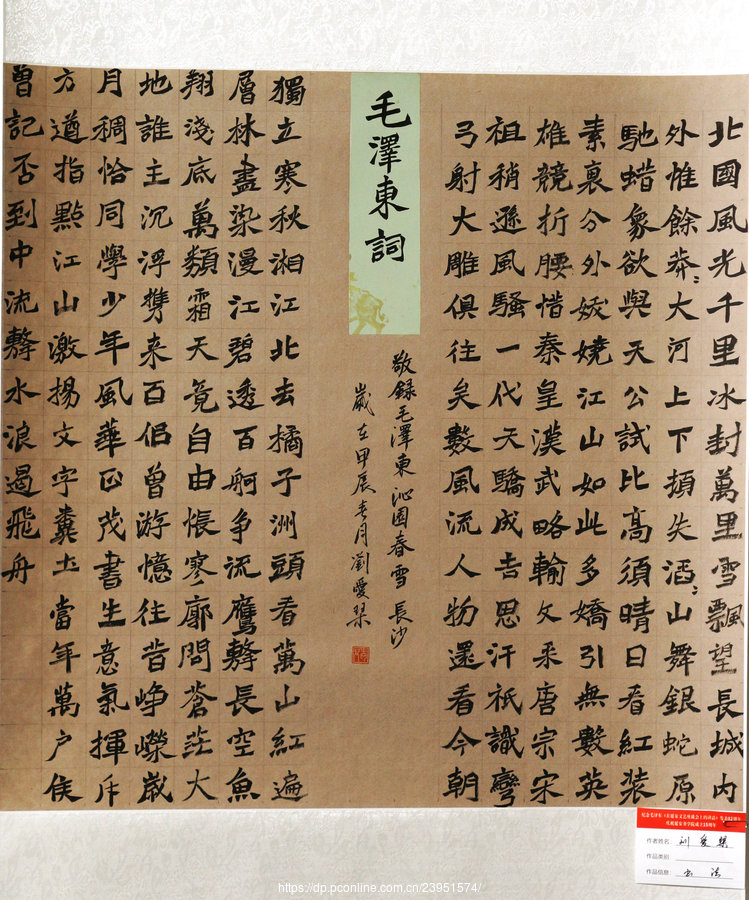 北國風光千里冰封萬里雪飄望長城内
外惟餘莽〻大河上下頓失滔〻山舞銀蛇原
馳蜡象欲與天公試比高須晴日看紅装
素裏分外妖嬈江山如此多嬌引無數英
雄競折腰惜秦皇漢武略輸文采唐宗宋
祖稍遜風騷一代天驕成吉思汗祇識彎
弓射大雕俱往矣數風流人物還看今朝
毛澤東詞
敬錄毛澤東沁園春雪長沙
歲在甲辰春月劉愛琹
獨立寒秋湘江北去橘子洲頭看萬山紅遍
層林盡染漫江碧透百舸争流鷹擊長空魚
翔淺底萬類霜天竟自由悵寥廓問蒼茫大
地誰主沉浮攜来百侣曾游憶往昔崢嶸歲
月稠恰同學少年風華正茂書生意氣揮斥
方遒指點江山激揚文字糞土當年萬户侯
曾記否到中流擊水浪遏飛舟
纪念毛泽东《在延安文艺座谈会上的讲话》发表82周年
作者姓名: 刘爱琹
作品类别:
作品信息: 书法
https://dp.pconline.com.cn/23951574/